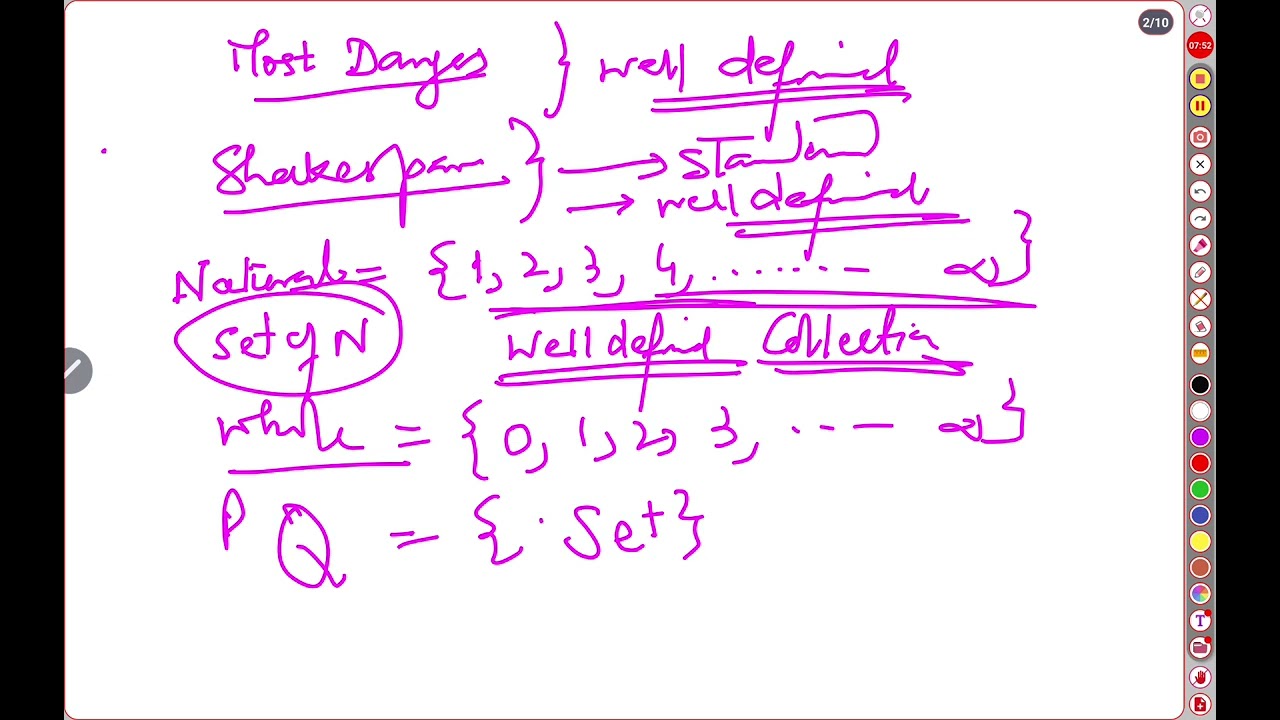 2/10
07:52
Most Danges } well defined
Shakespear } → Standard
→ well defined
Naturals = {1, 2, 3, 4, ....... ∞}
Set of N
well defined Collection
whole = {0, 1, 2, 3, ... ∞}
P Q = {. Set}
T